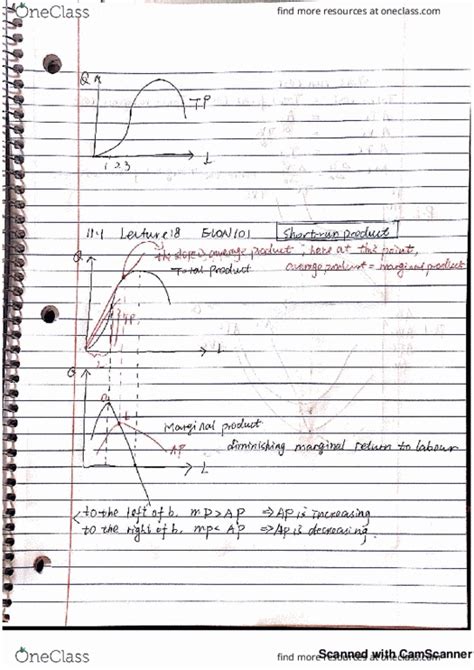 OneClass
find more resources at oneclass.com
Q
TP
1 2 3
L
11.1 Lecture 18 ECON101 Short-run product
the slope is average product, here at this point,
Q
Total product
average product = marginal product
TP
L
L
Q
a
b
Marginal product
AP
diminishing marginal return to labour
L
to the left of b. MP > AP ⇒ AP is increasing
to the right of b. MP < AP ⇒ AP is decreasing.
OneClass
find more resources at oneclass.com
Scanned with CamScanner